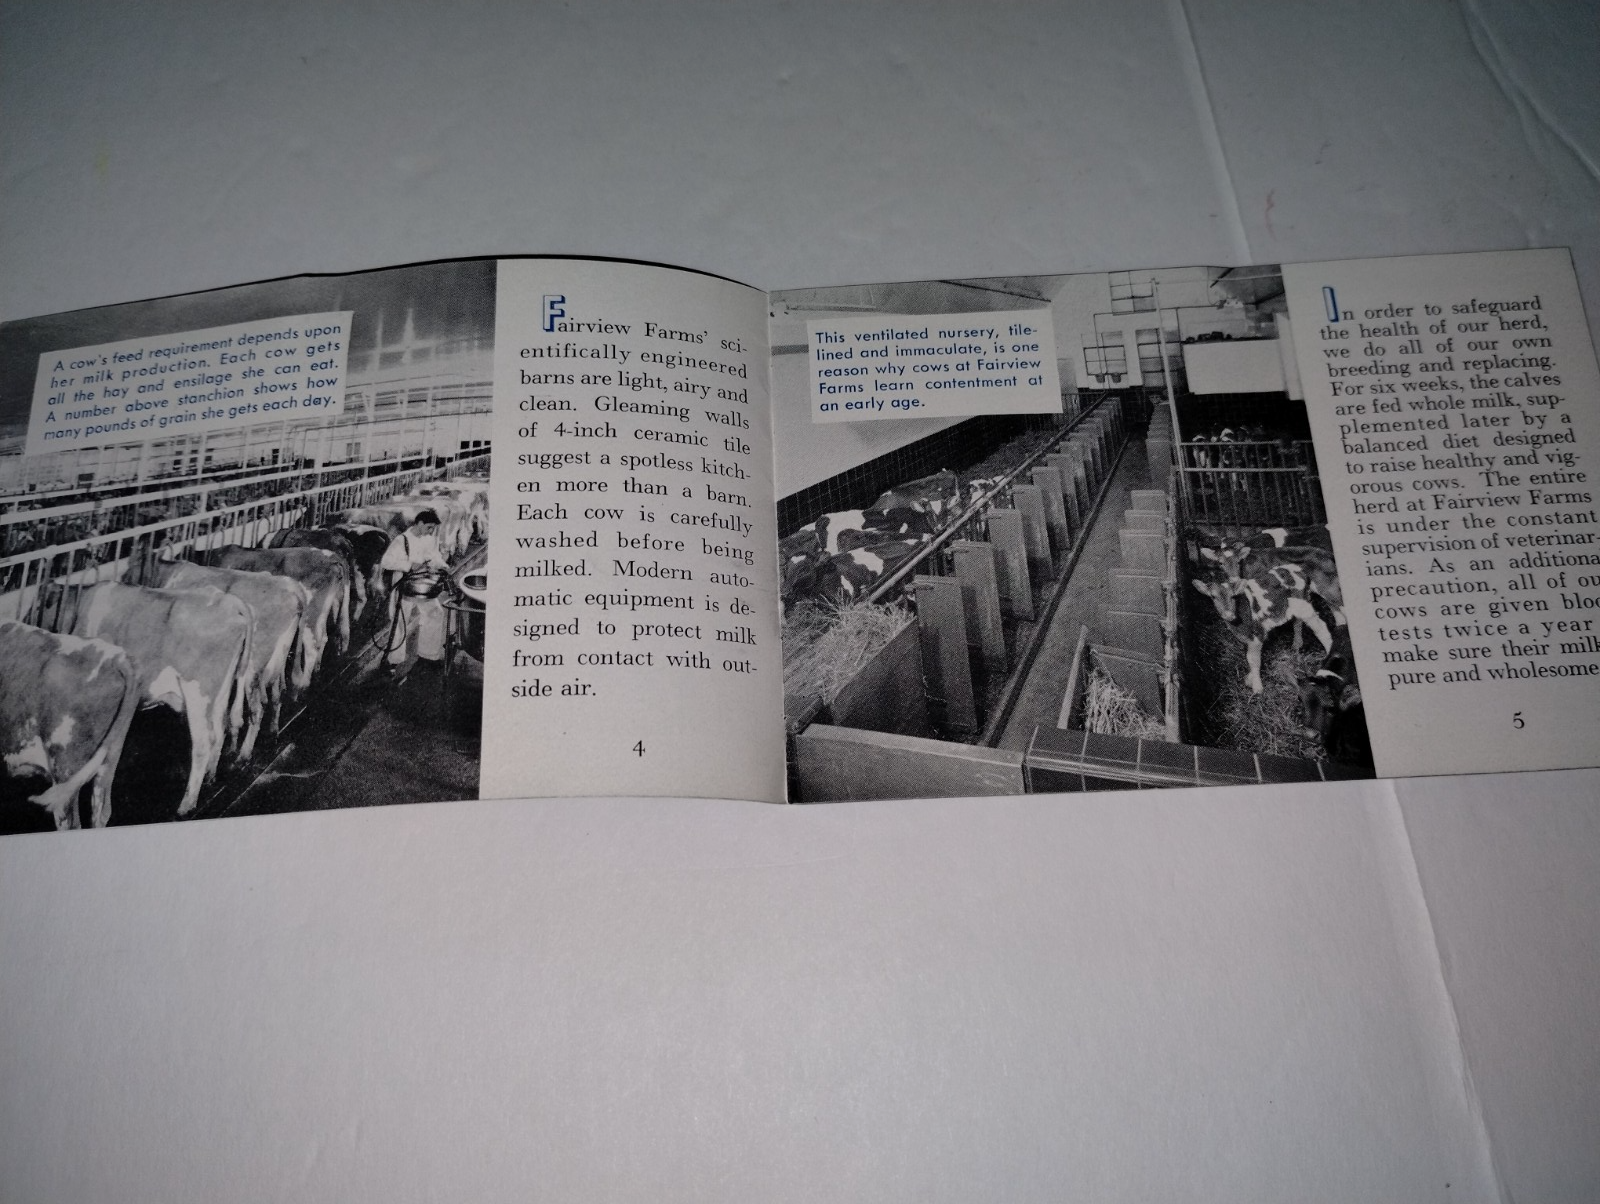 A cow's feed requirement depends upon
her milk production. Each cow gets
all the hay and ensilage she can eat.
A number above stanchion shows how
many pounds of grain she gets each day.
Fairview Farms' sci-
entifically engineered
barns are light, airy and
clean. Gleaming walls
of 4-inch ceramic tile
suggest a spotless kitch-
en more than a barn.
Each cow is carefully
washed before being
milked. Modern auto-
matic equipment is de-
signed to protect milk
from contact with out-
side air.
4
This ventilated nursery, tile-
lined and immaculate, is one
reason why cows at Fairview
Farms learn contentment at
an early age.
In order to safeguard
the health of our herd,
we do all of our own
breeding and replacing.
For six weeks, the calves
are fed whole milk, sup-
plemented later by a
balanced diet designed
to raise healthy and vig-
orous cows. The entire
herd at Fairview Farms
is under the constant
supervision of veterinar-
ians. As an additiona
precaution, all of ou
cows are given bloo
tests twice a year
make sure their milk
pure and wholesome
5